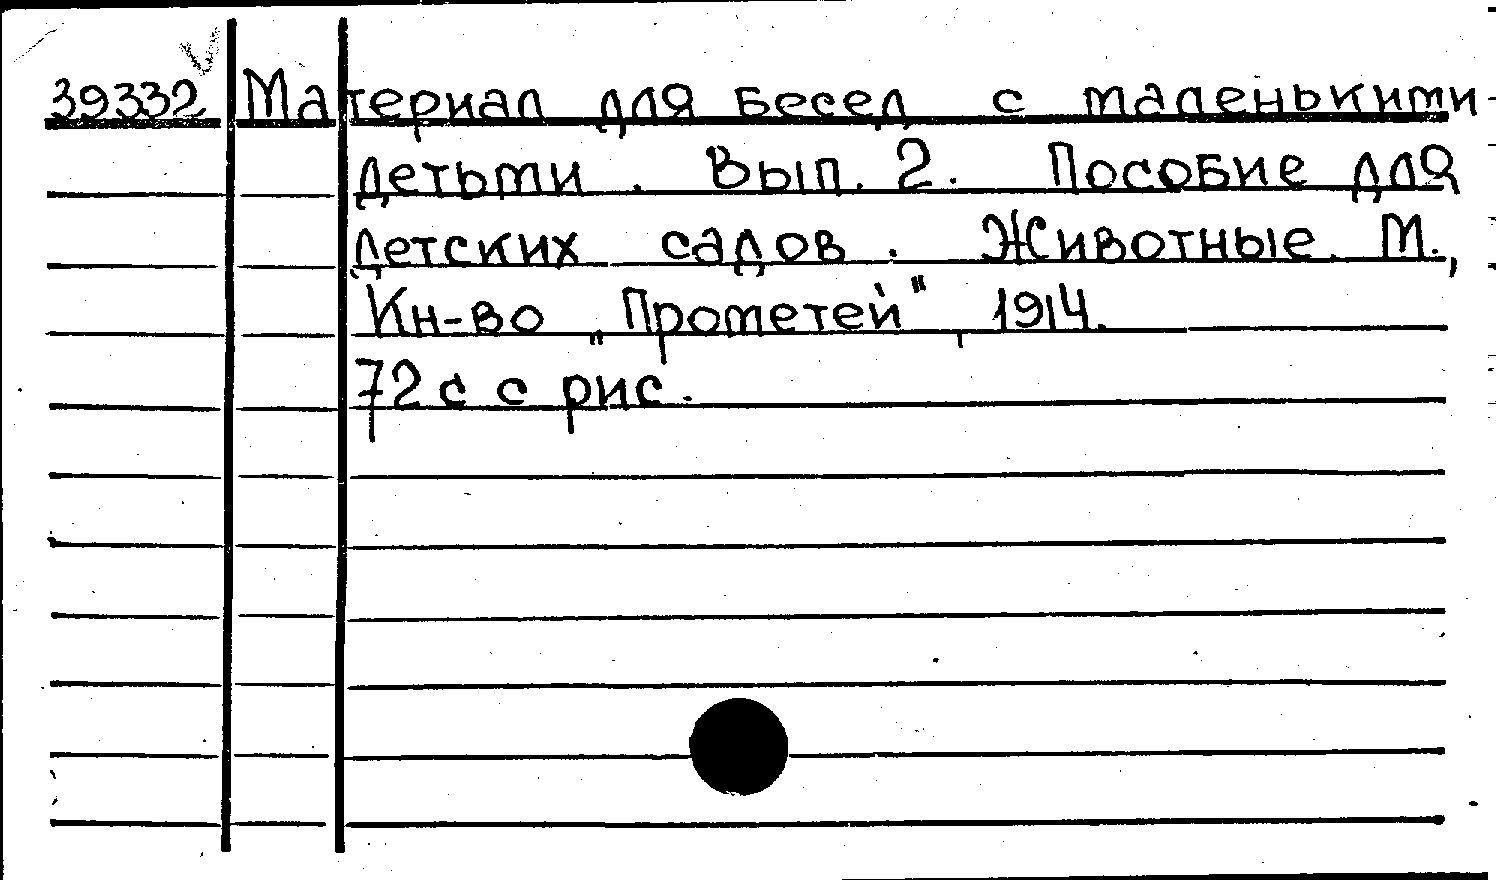 39332 Материал для бесед с маленькими
детьми. Вып. 2. Пособие для
детских садов. Животные. М.,
Кн-во „Прометей", 1914.
72 с с рис.